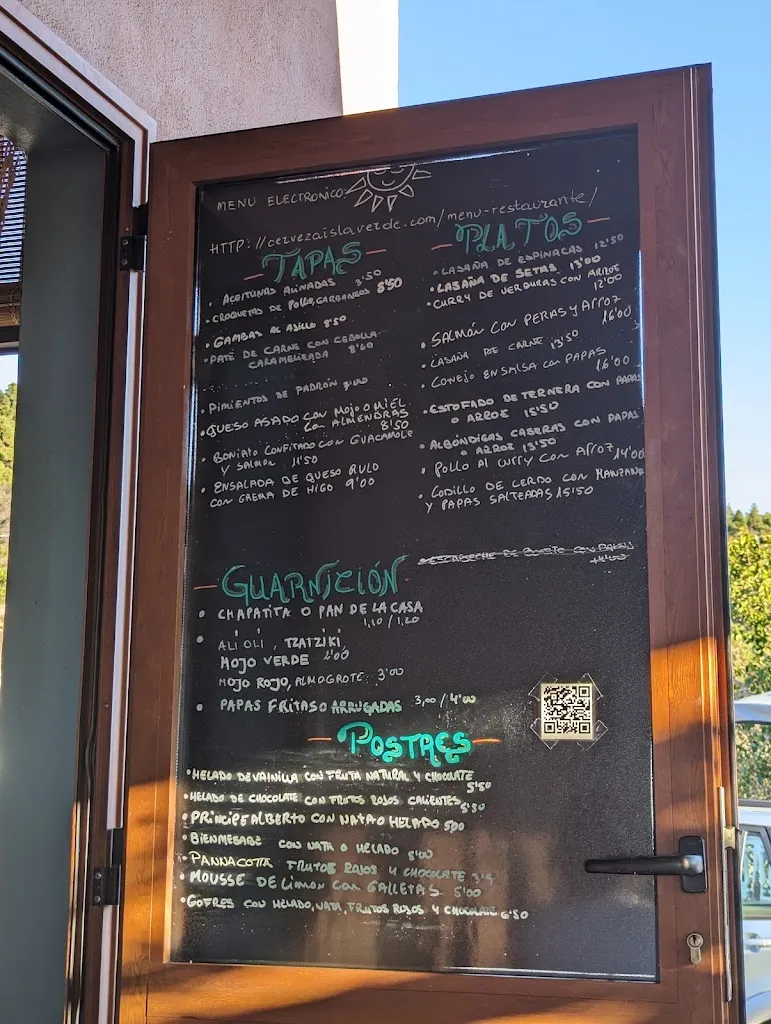 MENU ELECTRONICO:
HTTP://cervezaislaverde.com/menu-restaurante/
TAPAS
• ACEITUNAS ALINADAS 3'50
• CROQUETAS DE POLLO, GARBANZOS 8'50
• GAMBAS AL AJILLO 9'50
• PATÉ DE CARNE CON CEBOLLA
CARAMELIZADA 8'60
• PIMIENTOS DE PADRÓN
• QUESO ASADO CON MOJO O MIEL
CON ALMENDRAS
8'50
• BONIATO CONFITADO CON GUACAMOLE
Y SALMON 11'50
• ENSALADA DE QUESO RULO
CON CREMA DE HIGO 9'00
PLATOS
• LASAÑA DE ESPINACAS 12'50
• LASAÑA DE SETAS 13'00
• CURRY DE VERDURAS CON ARROZ
12'00
• SALMÓN CON PERAS Y ARROZ
16'00
• LASAÑA DE CARNE 13'50
• CONEJO EN SALSA CON PAPAS
16'00
• ESTOFADO DE TERNERA CON PAPAS
O ARROZ 15'50
• ALBÓNDIGAS CASERAS CON PAPAS
O ARROZ 13'50
• POLLO AL CURRY CON ARROZ 14'00
• CODILLO DE CERDO CON MANZANA
Y PAPAS SALTEADAS 15'50
ESCABECHE DE CON
GUARNICIÓN
• CHAPATITA O PAN DE LA CASA
1,10 / 1,20
• ALI OLI, TZATZIKI,
MOJO VERDE 2'00
MOJO ROJO, ALMOGROTE 3'00
• PAPAS FRITAS O ARRUGADAS 3,00 / 4'00
POSTRES
• HELADO DE VAINILLA CON FRUTA NATURAL Y CHOCOLATE
5'50
• HELADO DE CHOCOLATE CON FRUTOS ROJOS CALIENTES 5'50
• PRINCIPE ALBERTO CON NATA O HELADO 500
• BIENMESABE CON NATA O HELADO 5'00
• PANNACOTTA FRUTOS ROJOS Y CHOCOLATE
• MOUSSE DE LIMON CON GALLETAS 5'00
• GOFRES CON HELADO, NATA, FRUTOS ROJOS Y CHOCOLATE 6'50